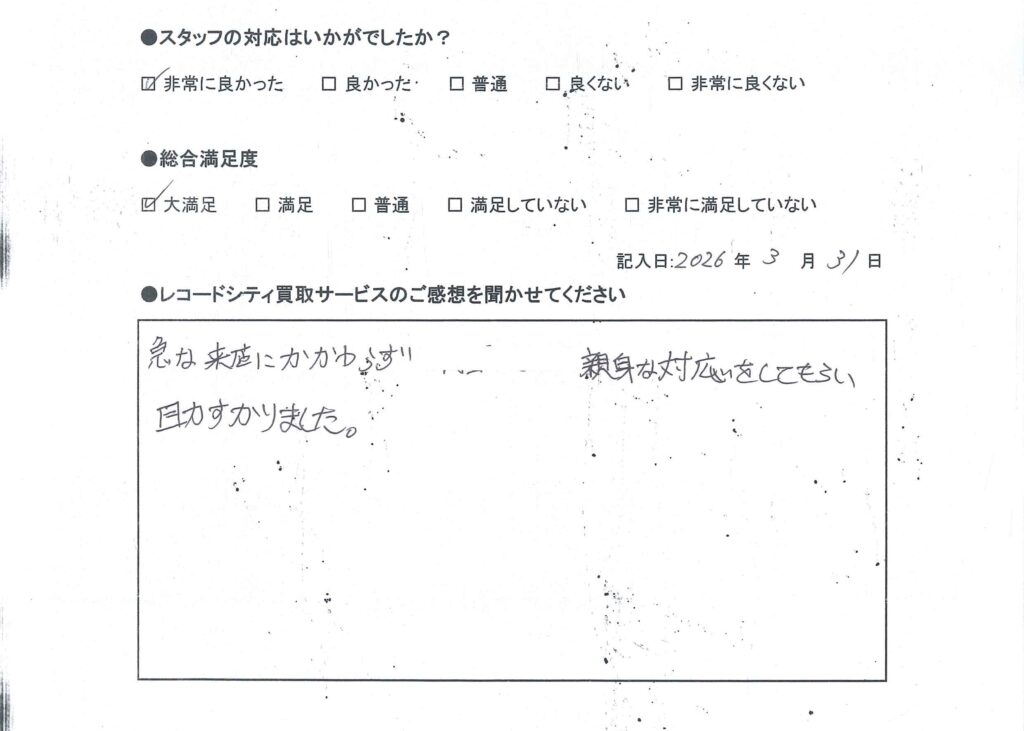 ●スタッフの対応はいかがでしたか？
☑ 非常に良かった □ 良かった □ 普通 □ 良くない □ 非常に良くない
●総合満足度
☑ 大満足 □ 満足 □ 普通 □ 満足していない □ 非常に満足していない
記入日:2026 年 3 月 31 日
●レコードシティ買取サービスのご感想を聞かせてください
急な来店にかかわらず 親身な対応をしてもらい
助かりました。